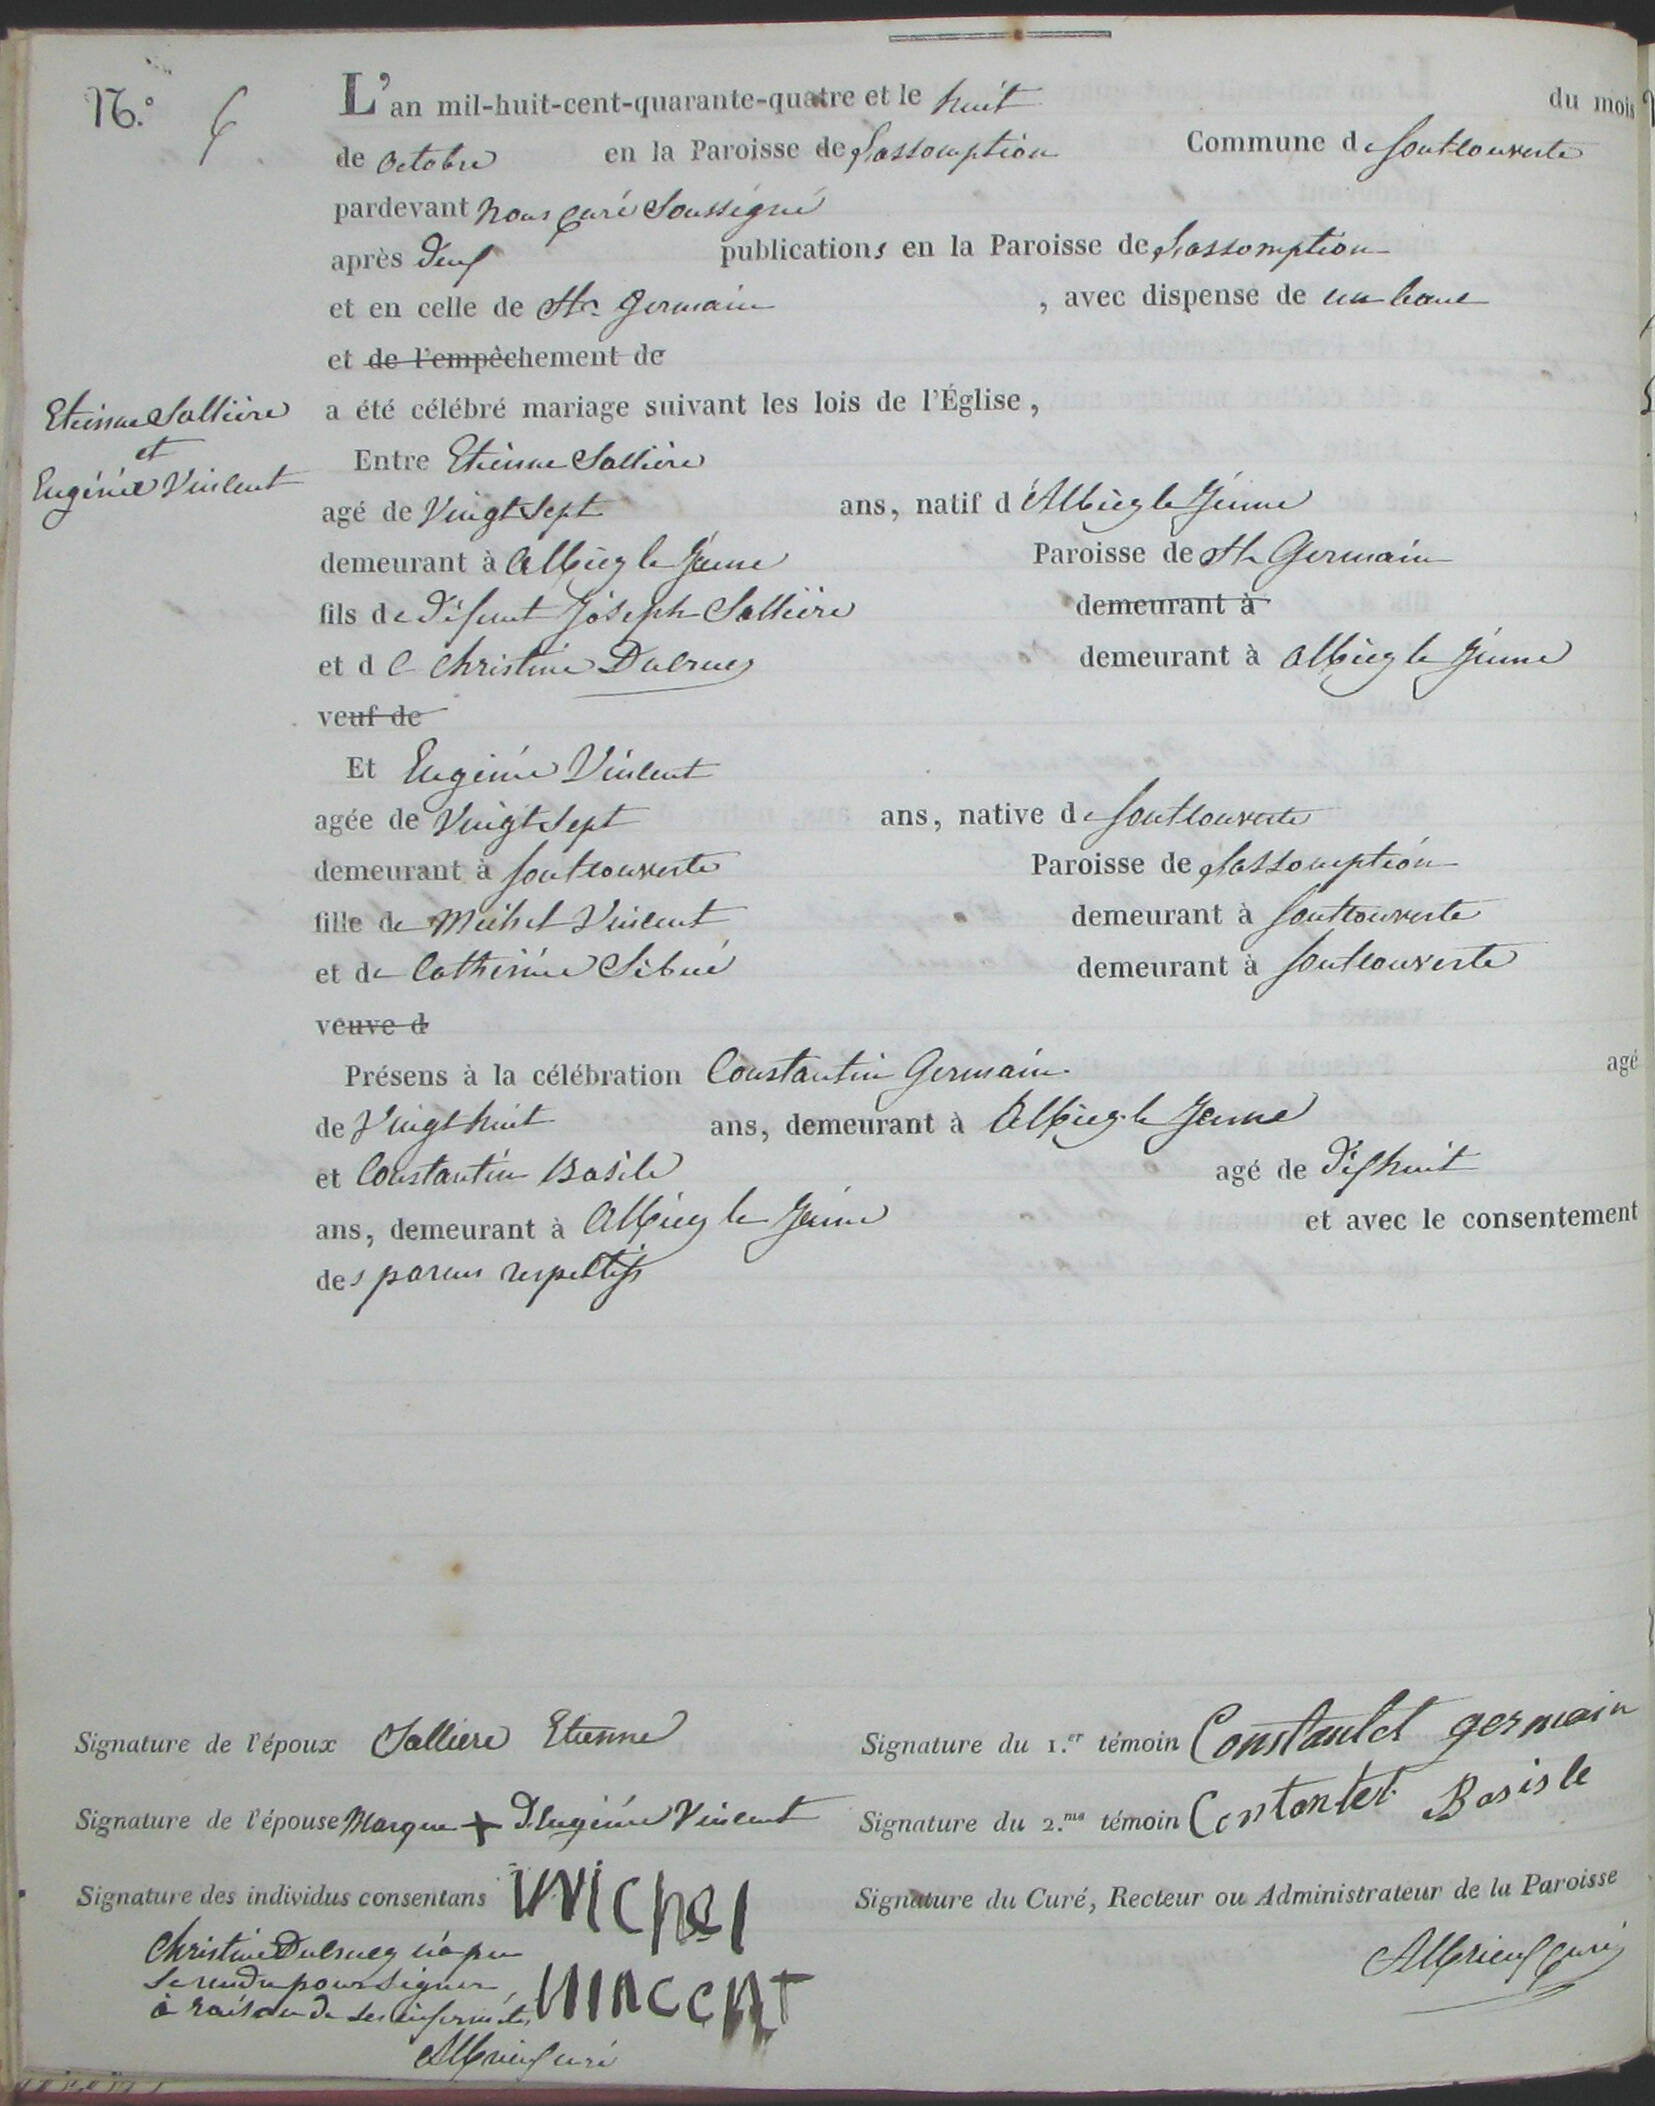 N.° 6
L'an mil-huit-cent-quarante-quatre et le huit du mois
de octobre en la Paroisse de L'assomption Commune de fontcouverte
pardevant nous curé soussigné
après deux publications en la Paroisse de L'assomption
et en celle de St. Germain, avec dispense de un banc
et de l'empêchement de
a été célébré mariage suivant les lois de l'Église,
Etienne Sallière
et
Eugénie Vincent
Entre Etienne Sallière
agé de Vingt Sept ans, natif d'Albiez le Jeune
demeurant à Albiez le Jeune Paroisse de St Germain
fils de défunt Joseph Sallière demeurant à
et de Christine Ducruez demeurant à Albiez le Jeune
veuf de
Et Eugénie Vincent
agée de Vingt Sept ans, native de fontcouverte
demeurant à fontcouverte Paroisse de L'assomption
fille de Michel Vincent demeurant à fontcouverte
et de Catherine Sibué demeurant à fontcouverte
veuve d
Présens à la célébration Constantin Germain agé
de Vingt huit ans, demeurant à Albiez le Jeune
et Constantin Basile agé de dixhuit
ans, demeurant à Albiez le Jeune et avec le consentement
des parens respectifs
Signature de l'époux Salliere Etienne
Signature du 1.er témoin Constantet germain
Signature de l'épouse Marque + D'Eugénie Vincent
Signature du 2.me témoin Contantet Basisle
Signature des individus consentans Michel
Vinccnt
Signature du Curé, Recteur ou Administrateur de la Paroisse
Albrieux curé
Christine Ducruez n'a pu
se rendre pour signer
à raison de ses infirmités
Albrieux curé